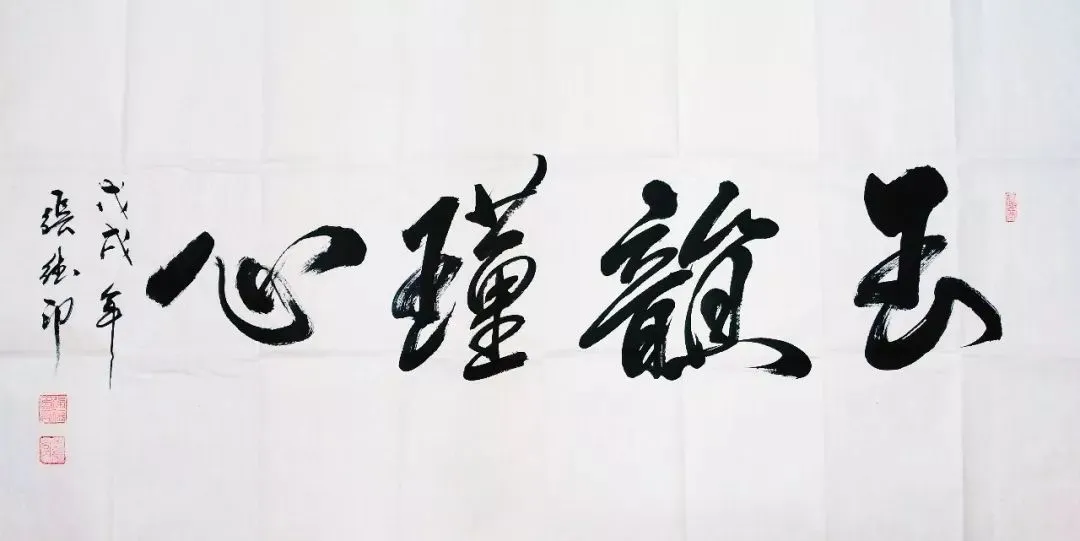 玉韻瑾心
戊戌年
張德印